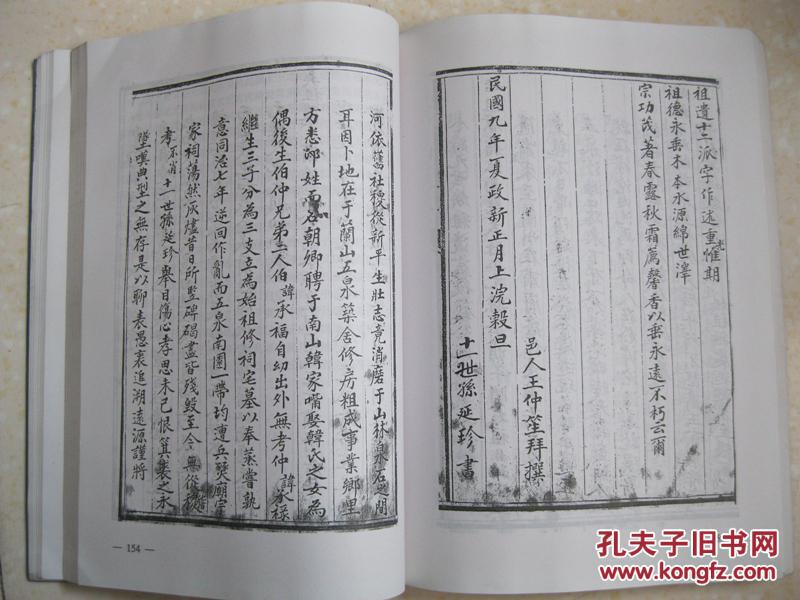 祖遺十二派字作述重惟期
光
祖德永垂木本水源綿世澤
宗功茂著春露秋霜薦馨香以垂永遠不朽云爾
邑人王仲笙拜撰
民國九年夏政新正月上浣穀旦
十一世孫延珍書
河依舊社稷從新平生壯志竟消磨于山林泉石之間
耳因卜地在于蘭山五泉築舍修房粗成事業鄉里
方悉邵姓而名朝卿聘于南山韓家嘴娶韓氏之女為
偶後生伯仲兄弟二人伯諱承福自幼出外無考仲諱承祿
繼生三子分為三支立為始祖修祠宅墓以奉蒸嘗孰
意同治七年逆回作亂而五泉南園一帶均遭兵燹廟宇
家祠蕩然灰燼昔日所豎碑碣盡皆殘毀至今無從稽
考不肖十一世孫延珍舉目傷心孝思未已恨箕裘之永
墜嘆典型之無存是以聊表愚衷追溯遠源謹將
— 154 —
孔夫子旧书网
www.kongfz.com